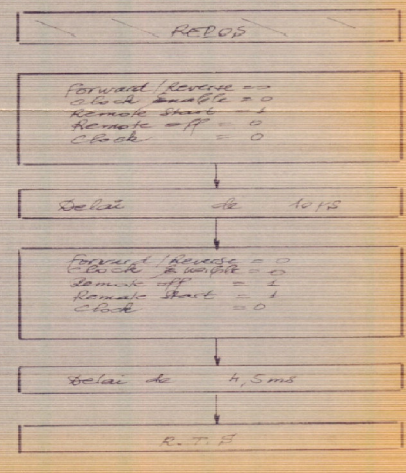 REPOS
Forward / Reverse = 0
Clock Enable = 0
Remote Start = 1
Remote off = 0
Clock = 0
Delai de 10 µs
Forward / Reverse = 0
Clock = 0
Remote off = 1
Remote Start = 1
Clock = 0
Delai de 4,5 ms
R.T.S